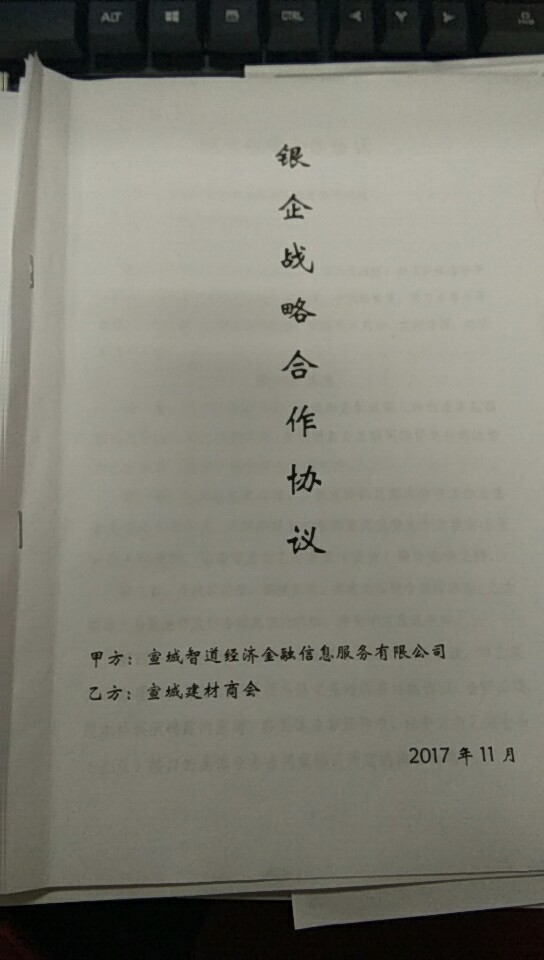 ALT
CTRL
银企战略合作协议
甲方：宣城智道经济金融信息服务有限公司
乙方：宣城建材商会
2017年11月